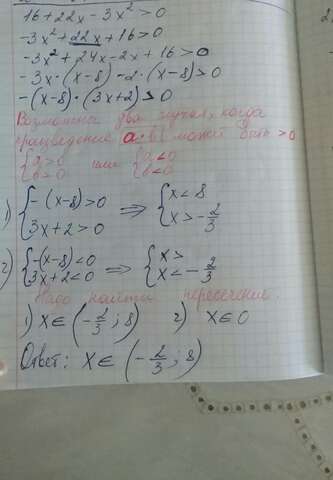 16+22x-3x²>0
-3x²+22x+16>0
-3x²+24x-2x+16>0
-3x·(x-8)-2·(x-8)>0
-(x-8)·(3x+2)>0
Возможны два случая, когда
произведение a·b может быть >0
{a>0 или {a<0
{b>0 {b<0
1) {-(x-8)>0 ⇒ {x<8
{3x+2>0 {x>-2/3
2) {-(x-8)<0 ⇒ {x>
{3x+2<0 {x<-2/3
Надо найти пересечение
1) x∈(-2/3;8) 2) x∈0
Ответ: x∈(-2/3;8)